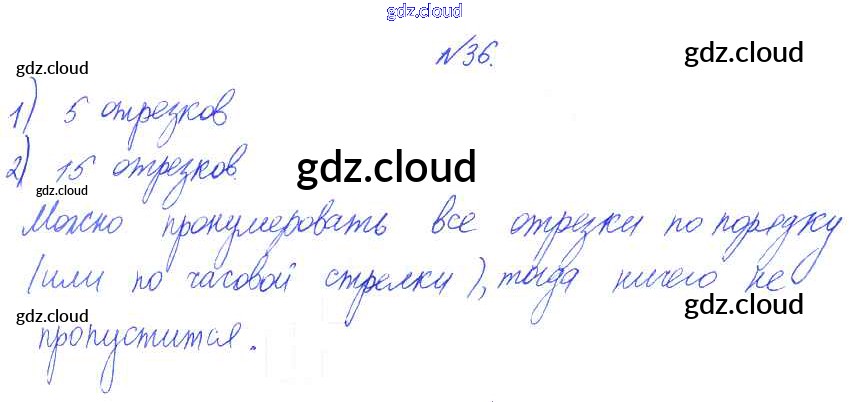 gdz.cloud
№36.
gdz.cloud
gdz.cloud
1) 5 отрезков
2) 15 отрезков.
gdz.cloud
gdz.cloud
Можно пронумеровать все отрезки по порядку
(или по часовой стрелки), тогда ничего не
gdz.cloud
gdz.cloud
пропустится.